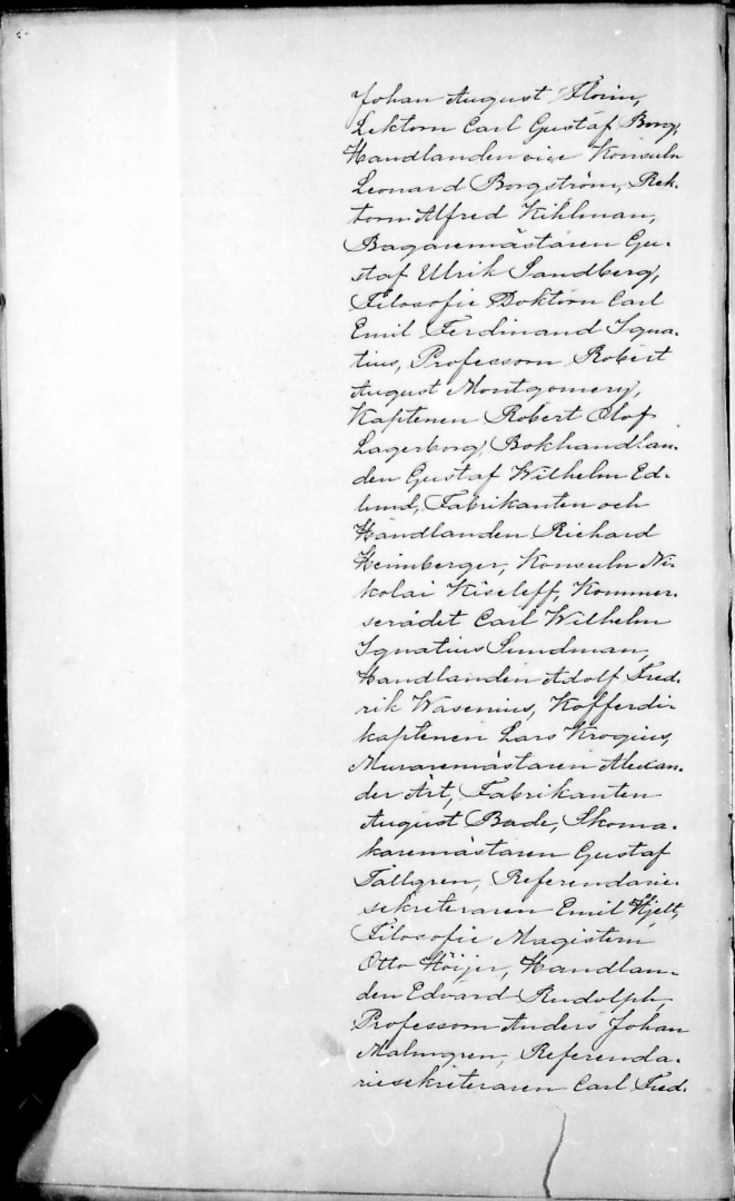 Johan August Florin,
Lektorn Carl Gustaf Borg,
Handlanden vice Konsuln
Leonard Borgström, Rek-
torn Alfred Kihlman,
Bagaremästaren Gu-
staf Ulrik Sandberg,
Filosofie Doktorn Carl
Emil Ferdinand Igna-
tius, Professorn Robert
August Montgomery,
Kaptenen Robert Olof
Lagerborg, Bokhandlan-
den Gustaf Wilhelm Ed-
lund, Fabrikanten och
Handlanden Richard
Heimberger, Konsuln Ni-
kolai Kiseleff, Kommer-
serådet Carl Wilhelm
Ignatius Sundman,
Handlanden Adolf Fred-
rik Wasenius, Kofferdi-
kaptenen Lars Krogius,
Muraremästaren Alexan-
der Art, Fabrikanten
August Bade, Skoma-
karemästaren Gustaf
Tallgren, Referendarie-
sekreteraren Emil Hjelt,
Filosofie Magistern
Otto Höijer, Handlan-
den Edvard Rudolph,
Professorn Anders Johan
Malmgren, Referenda-
riesekreteraren Carl Fred-